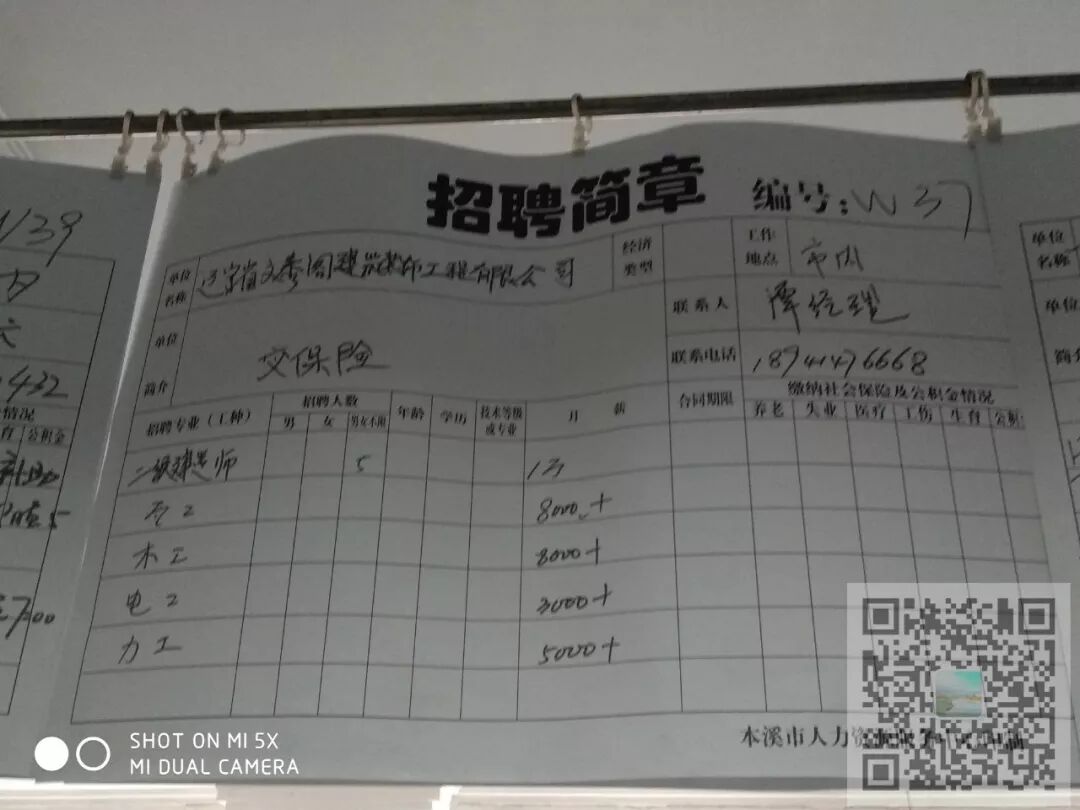 招聘简章 编号:W37
单位名称 辽宁省文秀阁建筑装饰工程有限公司 经济类型 工作地点 市内
联系人 谭经理
单位简介 交保险 联系电话 18741476668
招聘专业(工种) 招聘人数 年龄 学历 技术等级或专业 月薪 合同期限 缴纳社会保险及公积金情况
男 女 男女不限 养老 失业 医疗 工伤 生育 公积
二级建造师 5 1万
瓦工 8000.+
木工 8000+
电工 3000+
力工 5000+
本溪市人力资源
1/39
432
情况
育 公积金
700
单位名称
单位
简介
SHOT ON MI 5X
MI DUAL CAMERA